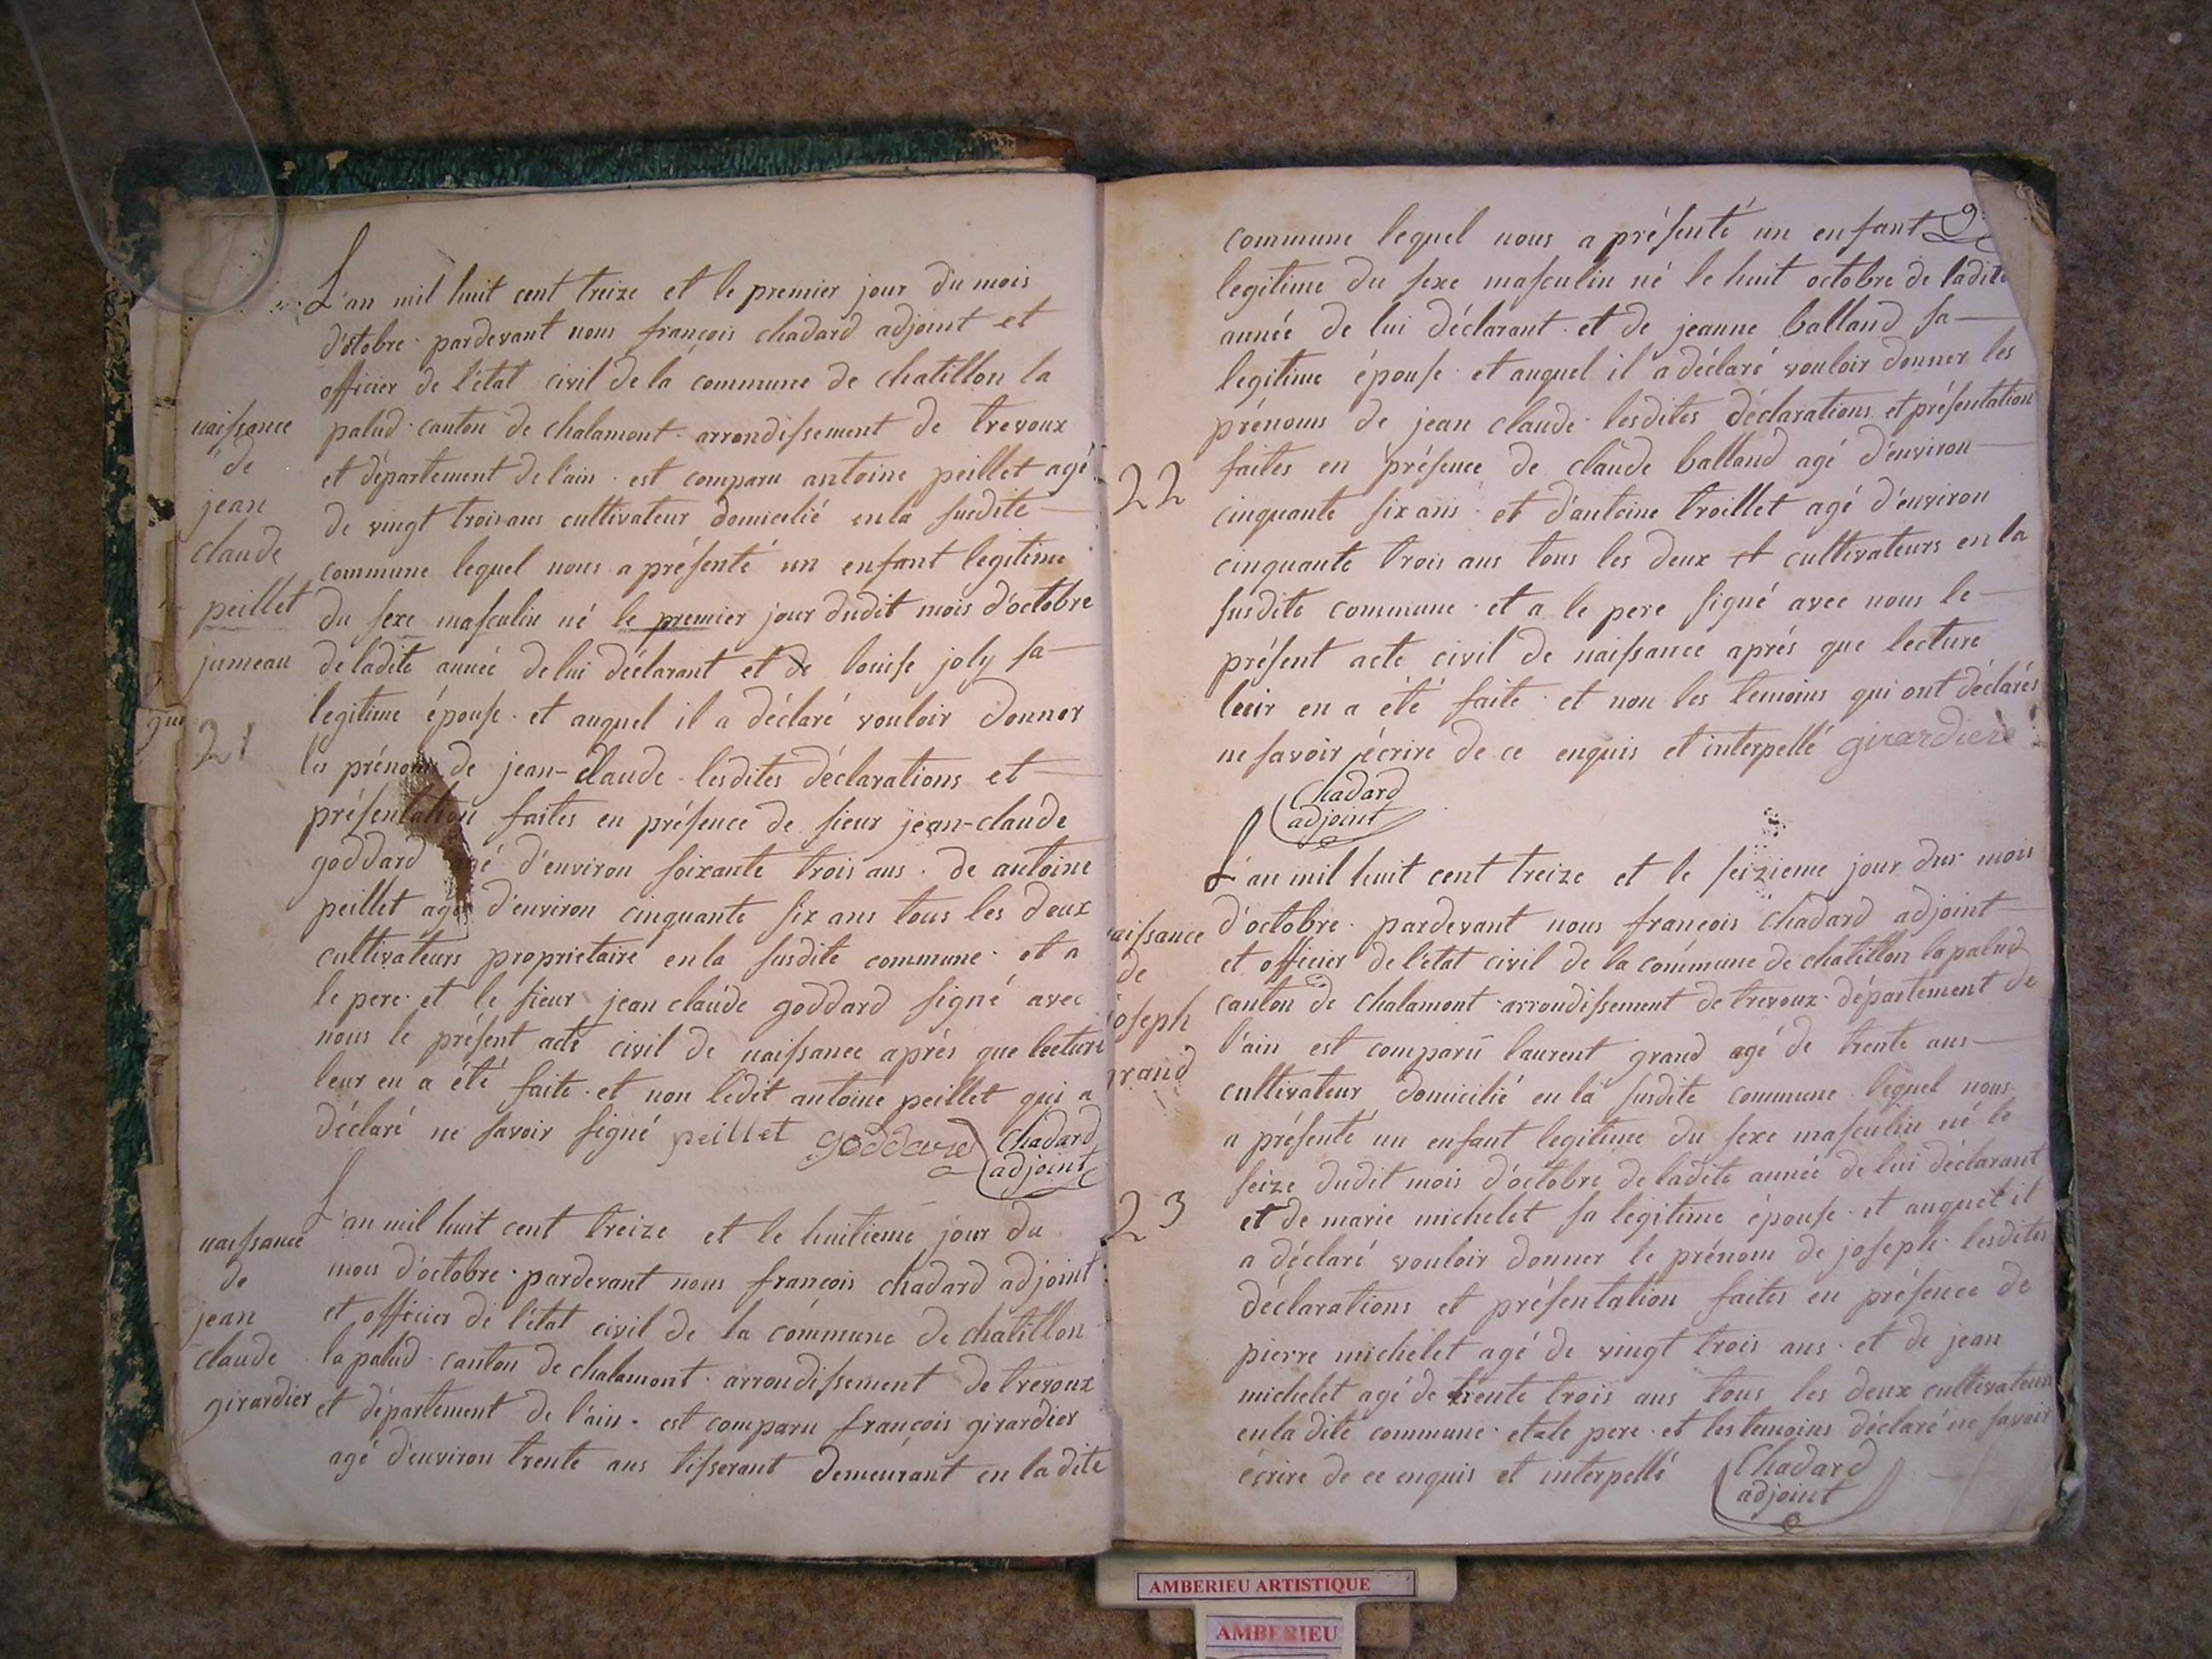 L'an mil huit cent treize et le premier jour du mois
d'octobre pardevant nous françois chadard adjoint et
officier de l'état civil de la commune de chatillon la
palud canton de chalamont arrondissement de trevoux
et département de l'ain est comparu antoine peillet agé
de vingt trois ans cultivateur domicilié en la susdite
commune lequel nous a présenté un enfant legitime
du sexe masculin né le premier jour dudit mois d'octobre
de ladite année de lui déclarant et de louise joly sa
legitime épouse et auquel il a déclaré vouloir donner
les prénoms de jean-claude lesdites déclarations et
présentation faites en présence de sieur jean-claude
goddard agé d'environ soixante trois ans de antoine
peillet agé d'environ cinquante six ans tous les deux
cultivateurs proprietaire en la susdite commune et a
le pere et le sieur jean claude goddard signé avec
nous le présent acte civil de naissance aprés que lecture
leur en a été faite et non ledit antoine peillet qui a
déclaré ne savoir signé peillet goddard Chadard
adjoint
naissance
de
jean
claude
peillet
jumeau
21
L'an mil huit cent treize et le huitieme jour du
mois d'octobre pardevant nous françois chadard adjoint
et officier de l'état civil de la commune de chatillon
la palud canton de chalamont arrondissement de trevoux
et département de l'ain est comparu françois girardier
agé d'environ trente ans tisserant demeurant en la dite
naissance
de
jean
claude
girardier
commune lequel nous a présenté un enfant
legitime du sexe masculin né le huit octobre de ladite
année de lui déclarant et de jeanne balland sa
legitime épouse et auquel il a déclaré vouloir donner les
prénoms de jean claude lesdites déclarations et présentation
faites en présence de claude balland agé d'environ
cinquante six ans et d'antoine troillet agé d'environ
cinquante trois ans tous les deux et cultivateurs en la
susdite commune et a le pere signé avec nous le
présent acte civil de naissance aprés que lecture
leur en a été faite et non les temoins qui ont déclarés
ne savoir écrire de ce enquis et interpellé girardier
Chadard
adjoint
22
L'an mil huit cent treize et le seizieme jour du mois
d'octobre pardevant nous françois chadard adjoint
et officier de l'état civil de la commune de chatillon la palud
canton de chalamont arrondissement de trevoux département de
l'ain est comparu laurent grand agé de trente ans
cultivateur domicilié en la susdite commune lequel nous
a présenté un enfant legitime du sexe masculin né le
seize dudit mois d'octobre de ladite année de lui déclarant
et de marie michelet sa legitime épouse et auquel il
a déclaré vouloir donner le prénom de joseph lesdites
déclarations et présentation faites en présence de
pierre michelet agé de vingt trois ans et de jean
michelet agé de trente trois ans tous les deux cultivateurs
en la dite commune et a le pere et les temoins déclaré ne savoir
écrire de ce enquis et interpellé Chadard
adjoint
aissance
de
joseph
grand
23
AMBERIEU ARTISTIQUE
AMBERIEU